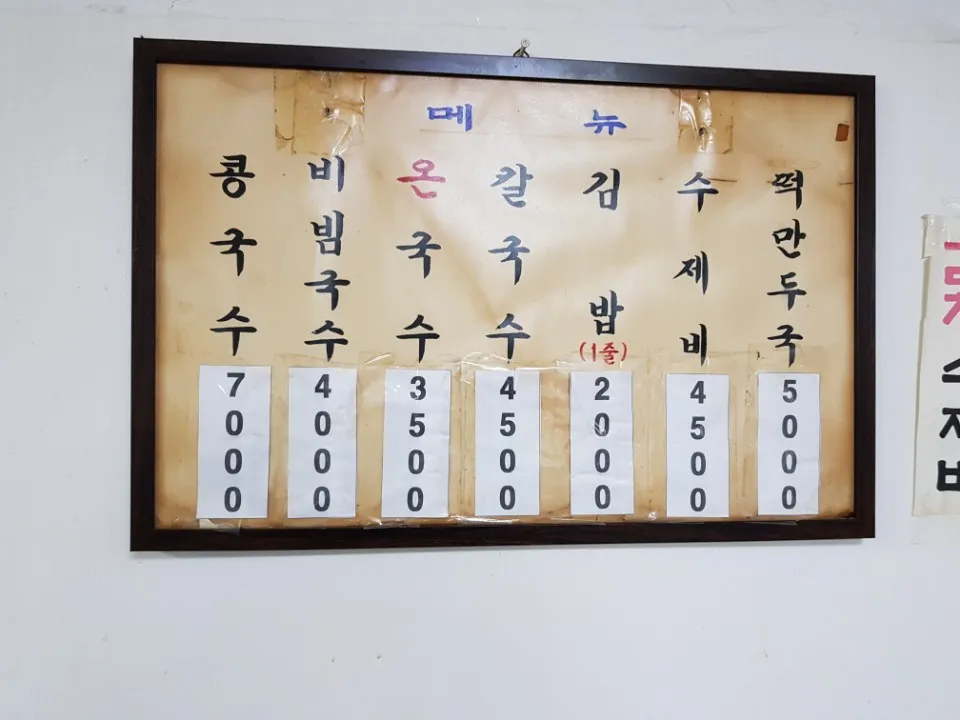 메뉴
콩국수
7000
비빔국수
4000
온국수
3500
칼국수
4500
김밥
(1줄)
2000
수제비
4500
떡만두국
5000